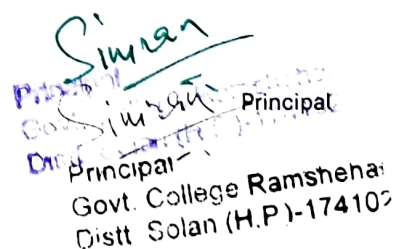 Simran
Simran
Principal
Principal
Govt. College Ramshehar
Distt Solan (H.P)-17410